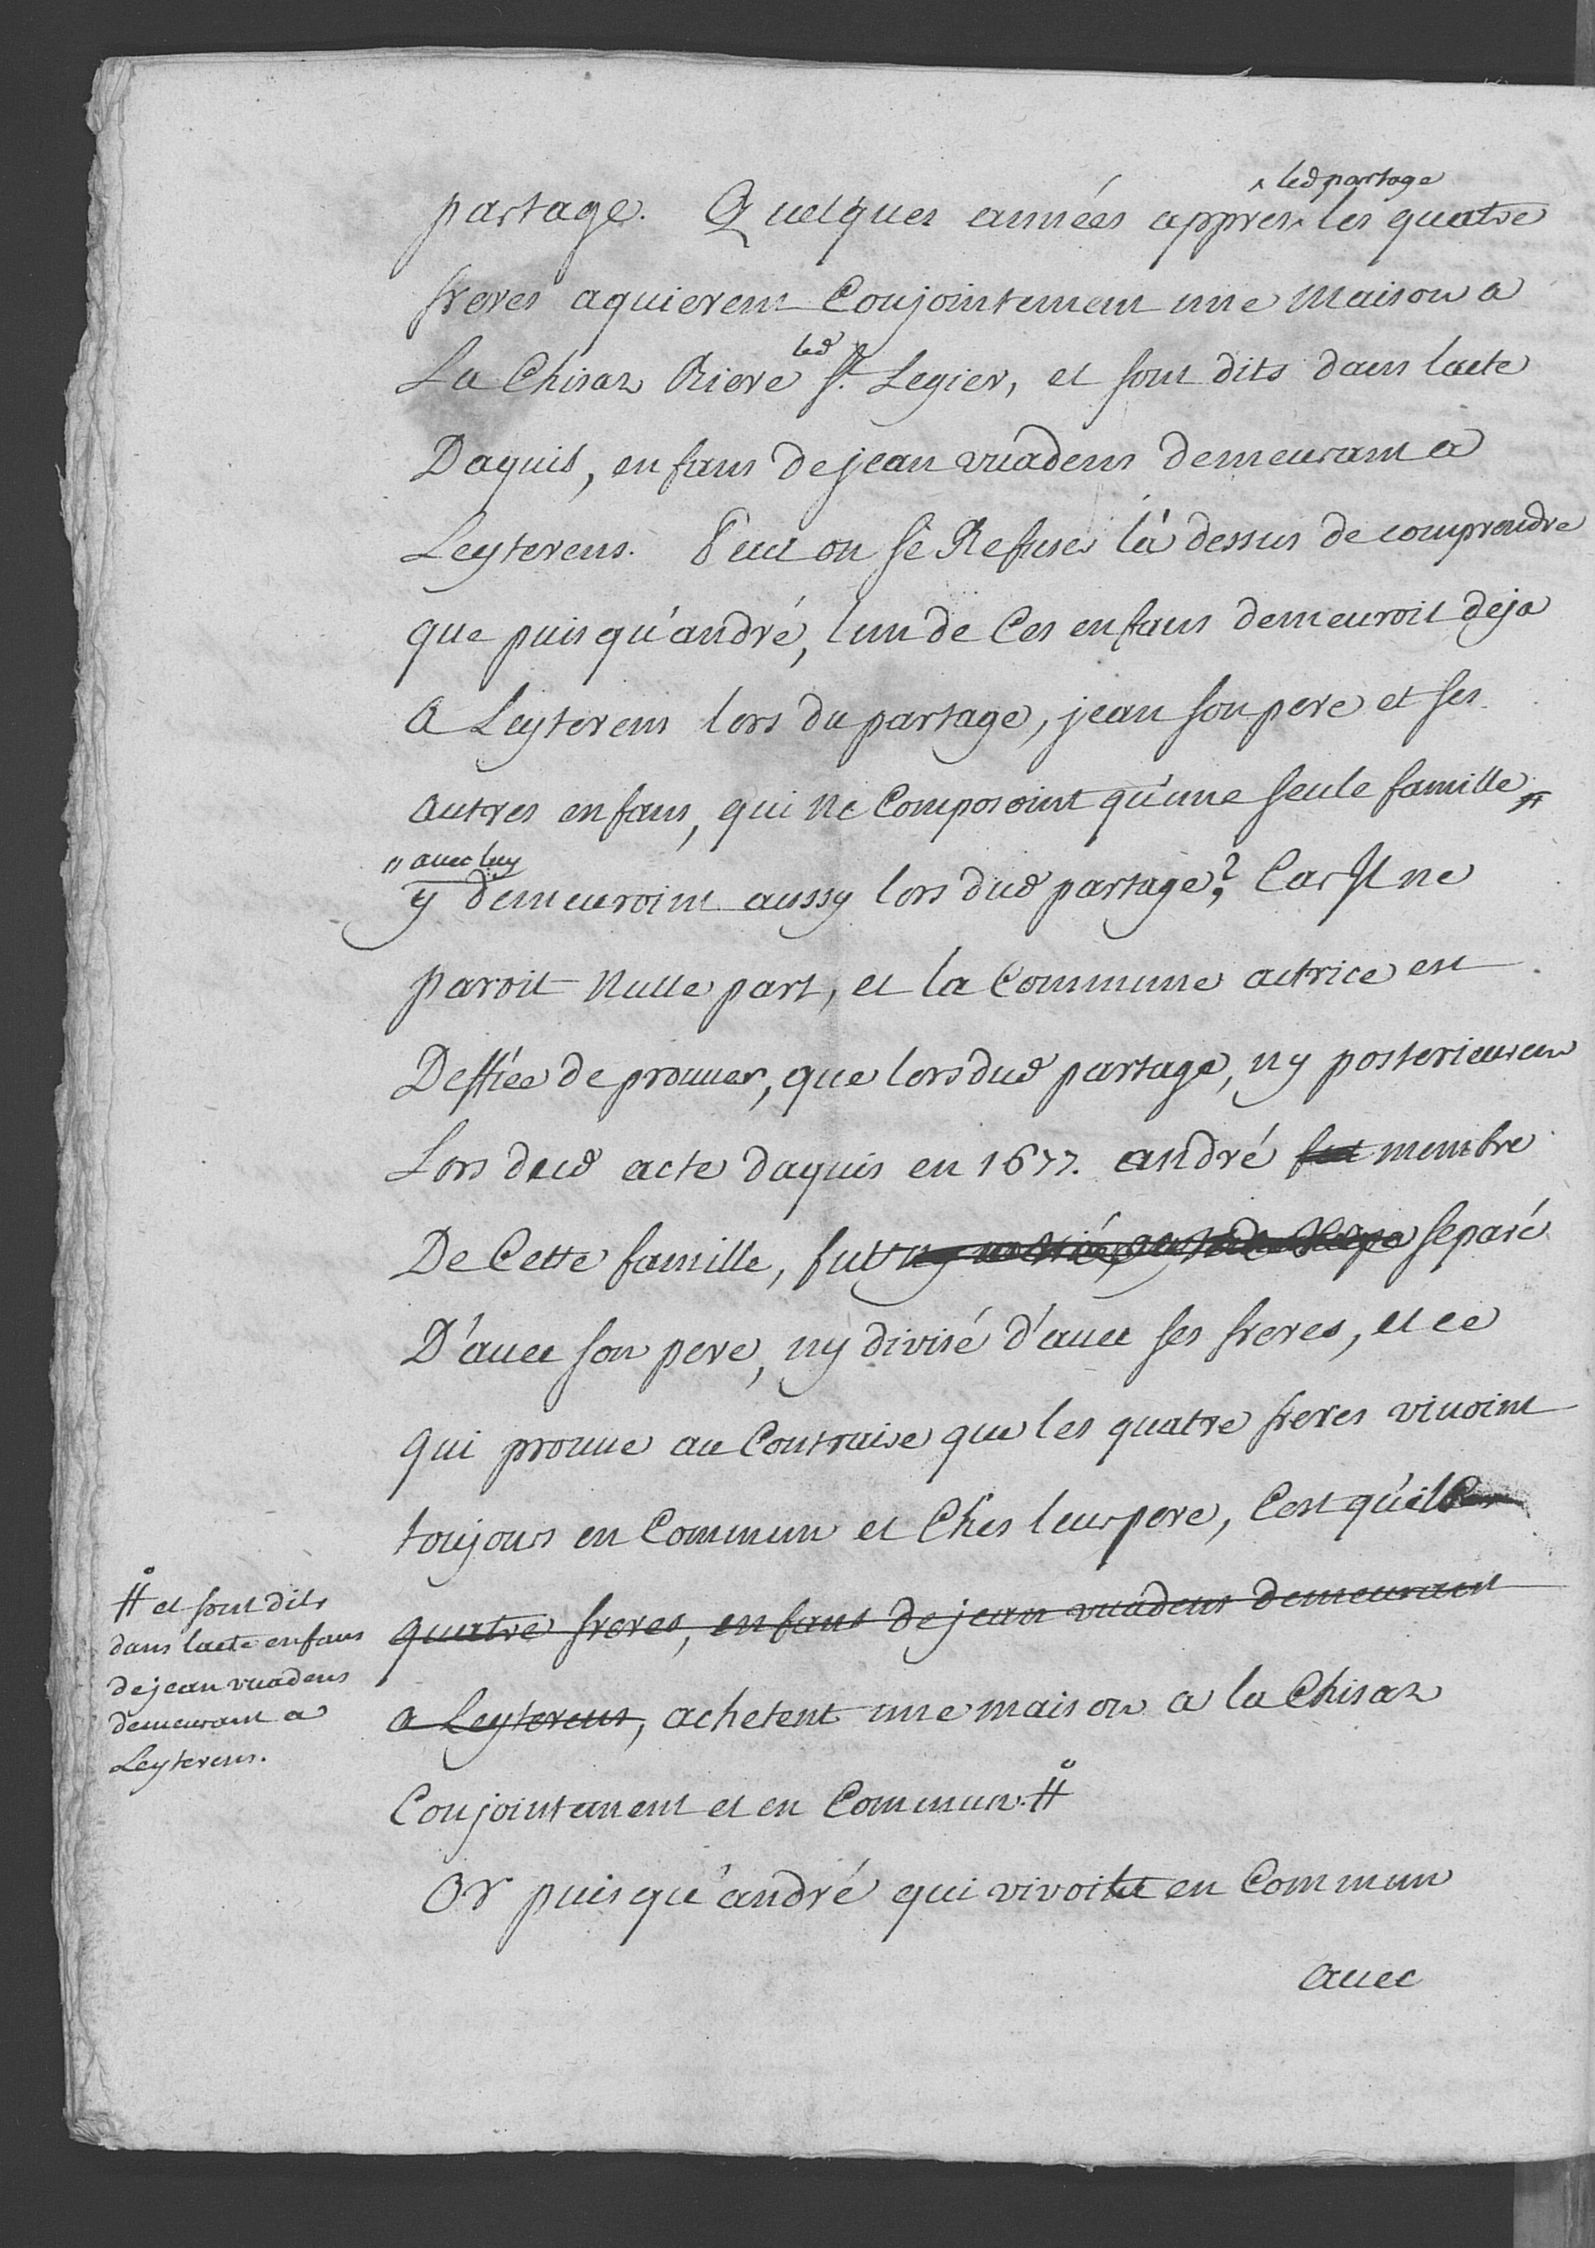 ^ led partage
partage. Quelques années appres ^ les quatre
freres aquierent Conjointement une maison a
led
La Chisaz Riere St. Legier, et sont dits dans lacte
Daquis, enfans de jean vuadens demeurant a
Leyterens. Peut on se Refuser là dessus de comprendre
que puis qu'andré, lun de Ces enfans demeuroit deja
a Leyterens lors du partage, jean son pere et ses
autres enfans, qui ne Composoint qu'une seule famille
" avec luy
y demeuroint aussy lors dud partage? Car Il ne
paroit Nulle part, et la Commune actrice est
Deffiée de prouver, que lors dud partage, ny posterieurem
Lors dud acte daquis en 1677. andré fut membre
De Cette famille, fut ny separé
D'avec son pere, ny divisé d'avec ses freres, et ce
qui prouve au Contraire que les quatre freres vivoint
toujours en Commun et Ches leur pere, C'est qu'il Ces
quatre freres, enfans de jean vuadens demeurant
a Leyterens, achetent une maison a la Chisaz
Conjointement et en Commun. #
# et sont dits
dans lacte enfans
de jean vuadens
demeurant a
Leyterens.
Or puis qu'andré qui vivoit en Commun
avec